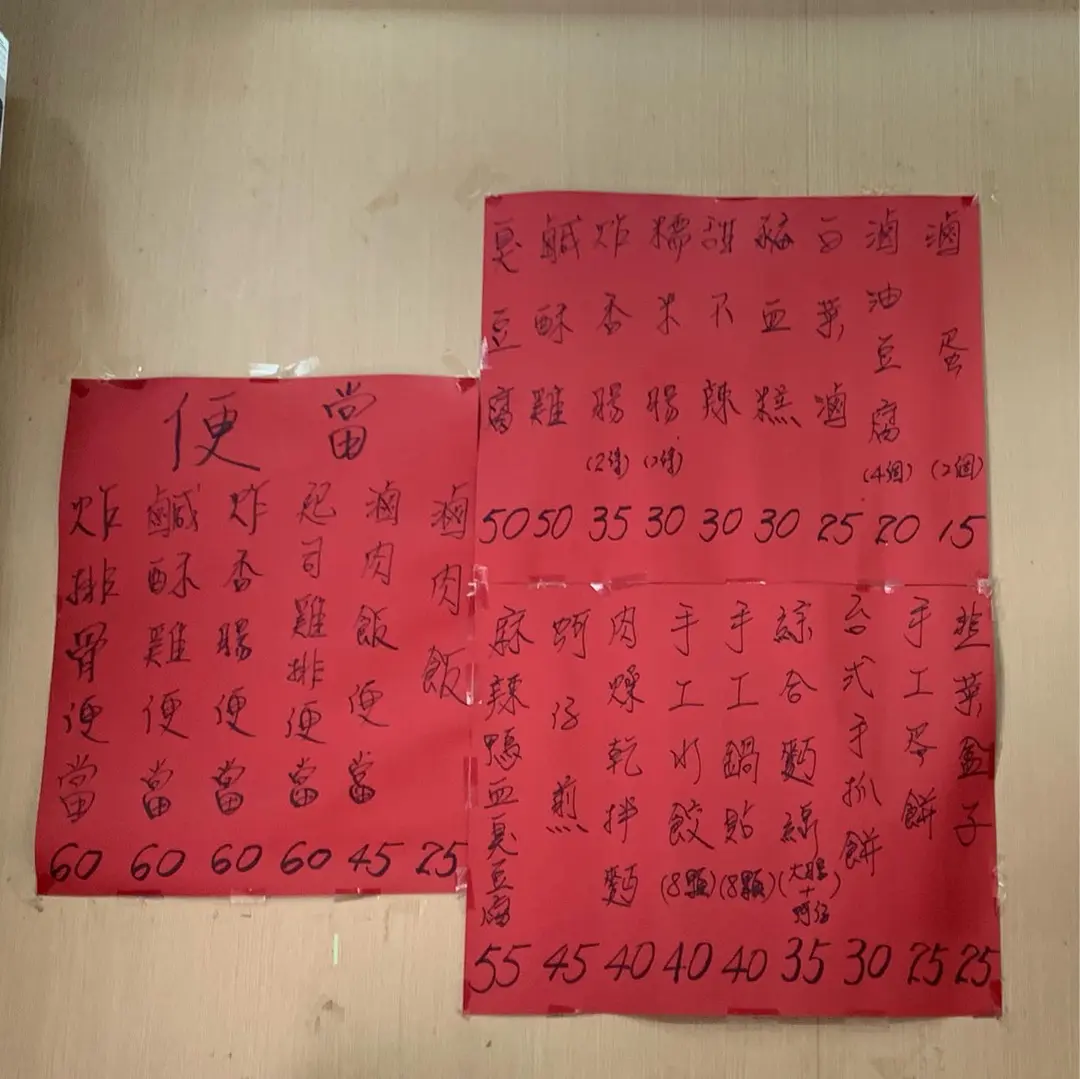 便當
炸排骨便當 60
鹹酥雞便當 60
炸香腸便當 60
起司雞排便當 60
滷肉飯便當 45
滷肉飯 25
臭豆腐 50
鹹酥雞 50
炸香腸(2條) 35
糯米腸(2條) 30
甜不辣 30
豬血糕 30
白菜滷 25
滷油豆腐(4個) 20
滷蛋(2個) 15
麻辣鴨血臭豆腐 55
蚵仔煎 45
肉燥乾拌麵 40
手工水餃(8顆) 40
手工鍋貼(8顆) 40
綜合麵線(大腸+蚵仔) 35
台式手抓餅 30
手工蛋餅 25
韮菜盒子 25